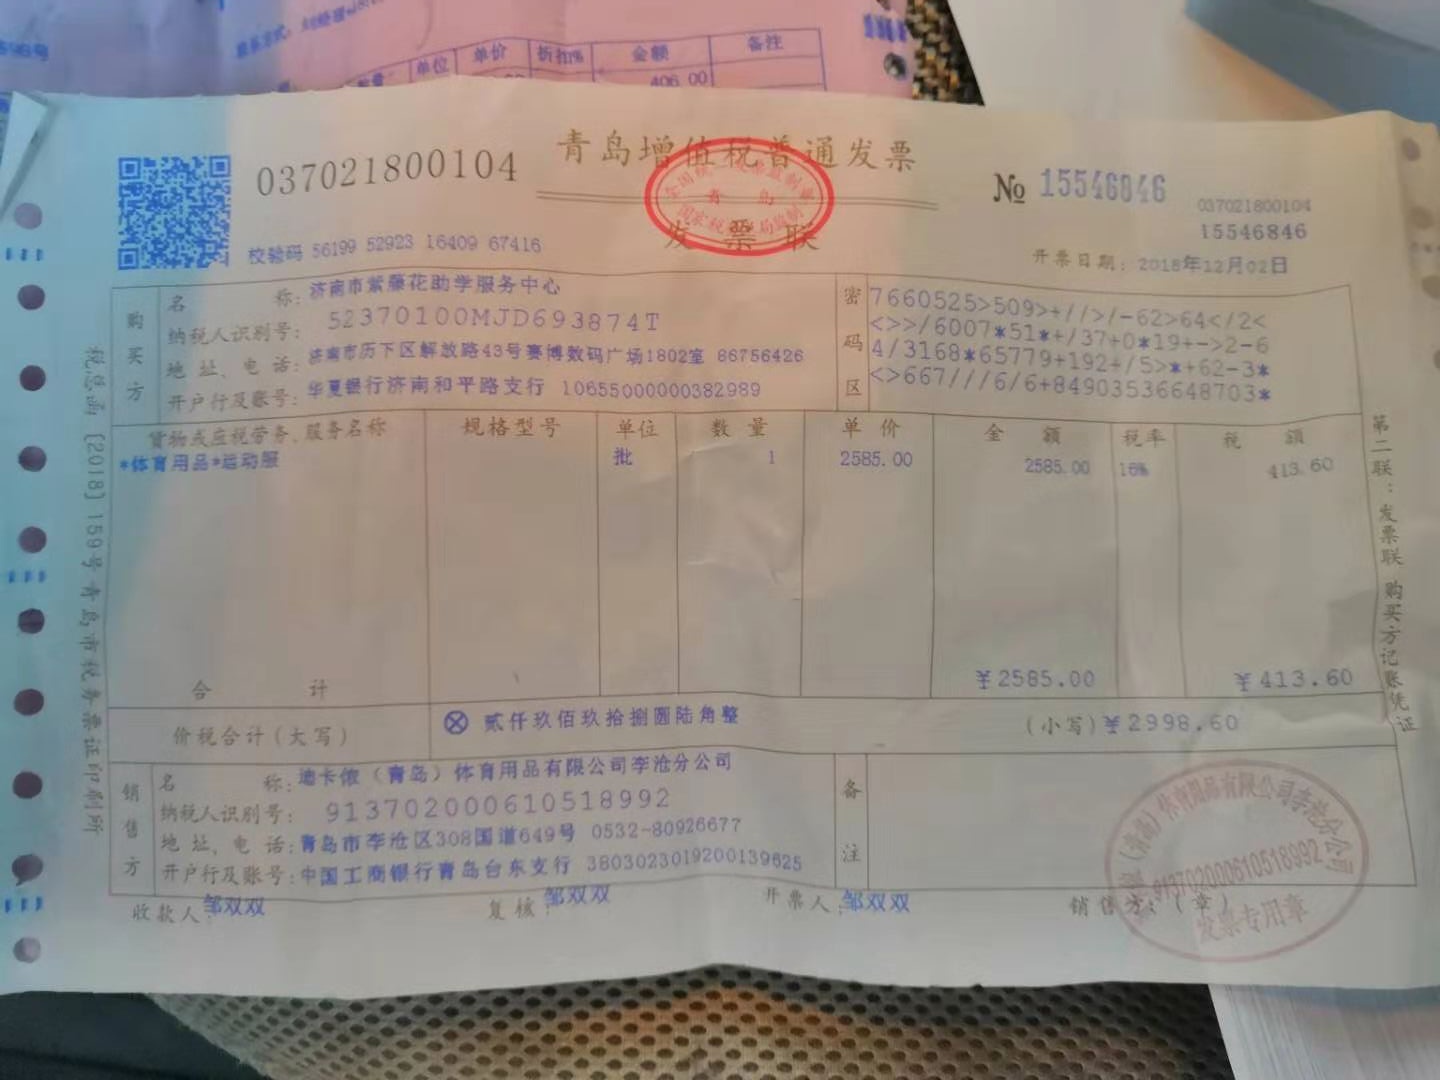 单位 单价 折扣% 金额 备注
406.00
青岛增值税普通发票
发票联
037021800104
№ 15546846
037021800104
15546846
校验码 56199 52923 16409 67416
开票日期: 2018年12月02日
购买方
名 称: 济南市紫藤花助学服务中心
纳税人识别号: 52370100MJD693874T
地 址、电 话: 济南市历下区解放路43号赛博数码广场1802室 86756426
开户行及账号: 华夏银行济南和平路支行 10655000000382989
密码区
7660525>509>+//>/-62>64</2<
<>>/6007*51*+/37+0*19+->2-6
4/3168*65779+192+/5>*+62-3*
<>667///6/6+84903536648703*
货物或应税劳务、服务名称 规格型号 单位 数量 单价 金额 税率 税额
*体育用品*运动服 批 1 2585.00 2585.00 16% 413.60
合 计 ¥2585.00 ¥413.60
价税合计(大写) ⊗ 贰仟玖佰玖拾捌圆陆角整 (小写) ¥2998.60
销售方
名 称: 迪卡侬(青岛)体育用品有限公司李沧分公司
纳税人识别号: 913702000610518992
地 址、电 话: 青岛市李沧区308国道649号 0532-80926677
开户行及账号: 中国工商银行青岛台东支行 3803023019200139625
备注
收款人: 邹双双 复核: 邹双双 开票人: 邹双双 销售方:(章)
913702000610518992
发票专用章
第二联:发票联 购买方记账凭证
税总函〔2018〕159号青岛市税务票证印刷所